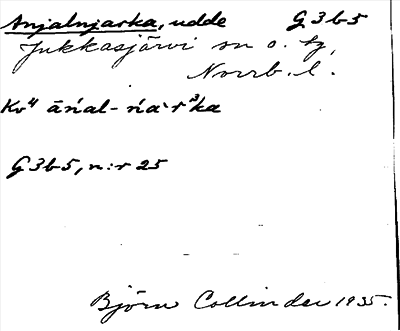 Anjalnjarka, udde G3b5
Jukkasjärvi sn o. tg,
Norrb. l.
Kv4 āńal-ńa`rˀka
G3b5, n:r 25
Björn Collinder 1935.